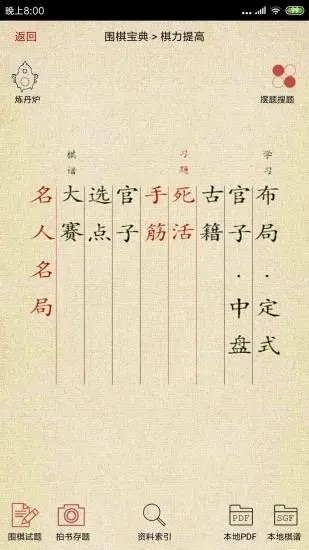 晚上8:00
返回
围棋宝典 > 棋力提高
炼丹炉
摆题搜题
学习
布局．定式
官子．中盘
古籍
习题
死活
手筋
官子
选点
棋谱
大赛
名人名局
围棋试题
拍书存题
资料索引
PDF
本地PDF
SGF
本地棋谱